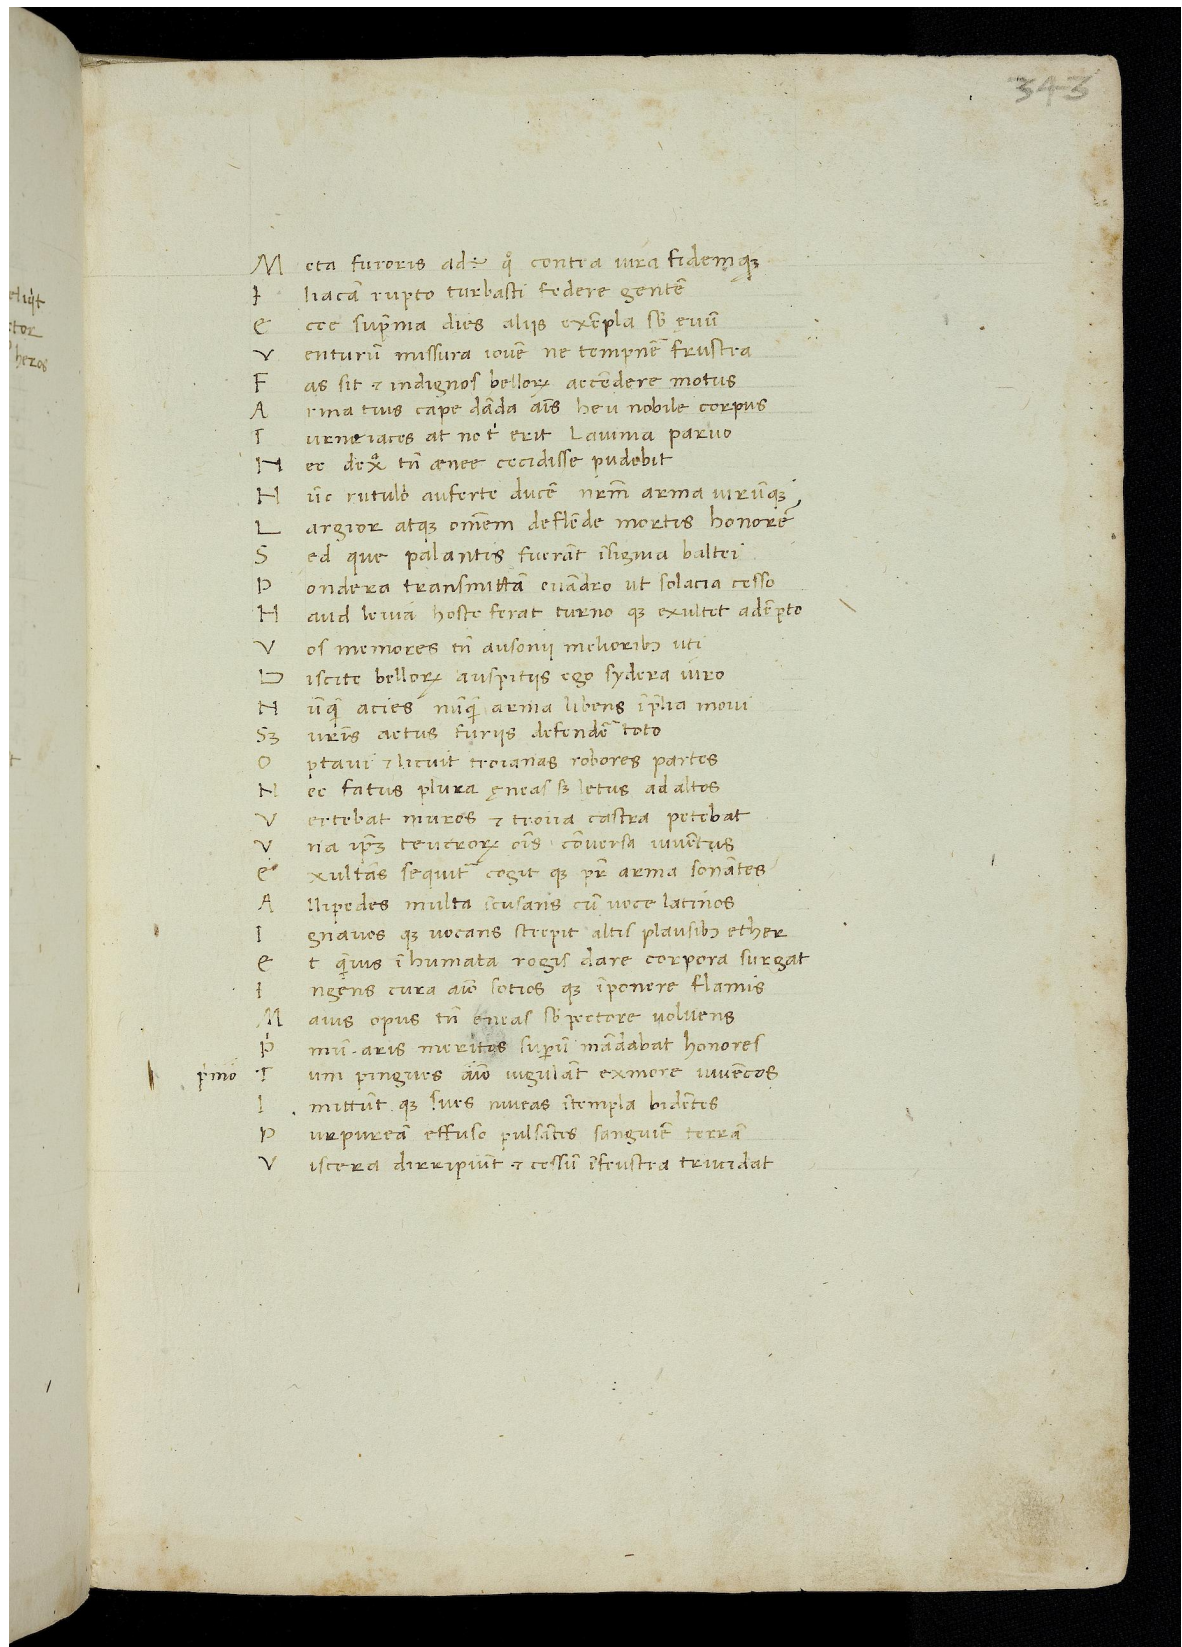 343
eliqͥt
ctor
heros
M eta furoris adē qͦ contra iura fidemqꝫ
I liacā rupto turbasti federe gentē
E cce sup̄ma dies aliis exēpla sƀ ęuū
V enturū missura iouē ne tempnē frustra
F as sit ⁊ indignos belloꝝ accēdere motus
A rma tuis cape dāda aīs heu nobile corpus
T urne iaces at nō tͥ erit Lauinia paruo
N ec dexͣ tn̄ ænee cecidisse pudebit
N ūc rutuli auferte ducē nrm̄ arma uirūqꝫ
L argior atqꝫ om̄em deflēde mortis honorē
S ed que palantis fuerāt īsignia baltei
P ondera transmittā euādro ut solacia cesso
H aud leuia hoste ferat turno qꝫ exultet adēpto
V os memores tn̄ ausonii melioribꝫ uti
D iscite belloꝝ auspitiis ego sydera iuro
N ūqͣ acies nūqͣ arma libens īp̄lia moui
Sꝫ uris̄ actus furiis defendē toto
O ptaui ⁊ licuit troianas robores partes
N ec fatus plura ęneas sꝫ letus ad altos
V ertebat muros ⁊ troiia castra petebat
V na ip̄ꝫ teucroꝝ oīs cōuersa iuuētus
E xultās sequit̄ cogit qꝫ pr̄ arma sonātes
A llipedes multa īcusans cū uoce latinos
I gnauos qꝫ uocans strepit altis plausibꝫ ether
E t qͣuis īhumata rogis dare corpora surgat
I ngēns cura aīo sotios qꝫ īponere flamis
M aius opus tn̄ eneas sƀ pectore uoluens
Pͥ mū aris meritos suꝑū mādabat honores
pͥmo T um pingues aīo iugulāt exmore iuuēcos
I mittūt qꝫ sues niueas ītempla bidētes
P urpureā effuso pulsātis sanguiē terrā
V iscera dirripiūt ⁊ cessū īfrustra trucidat